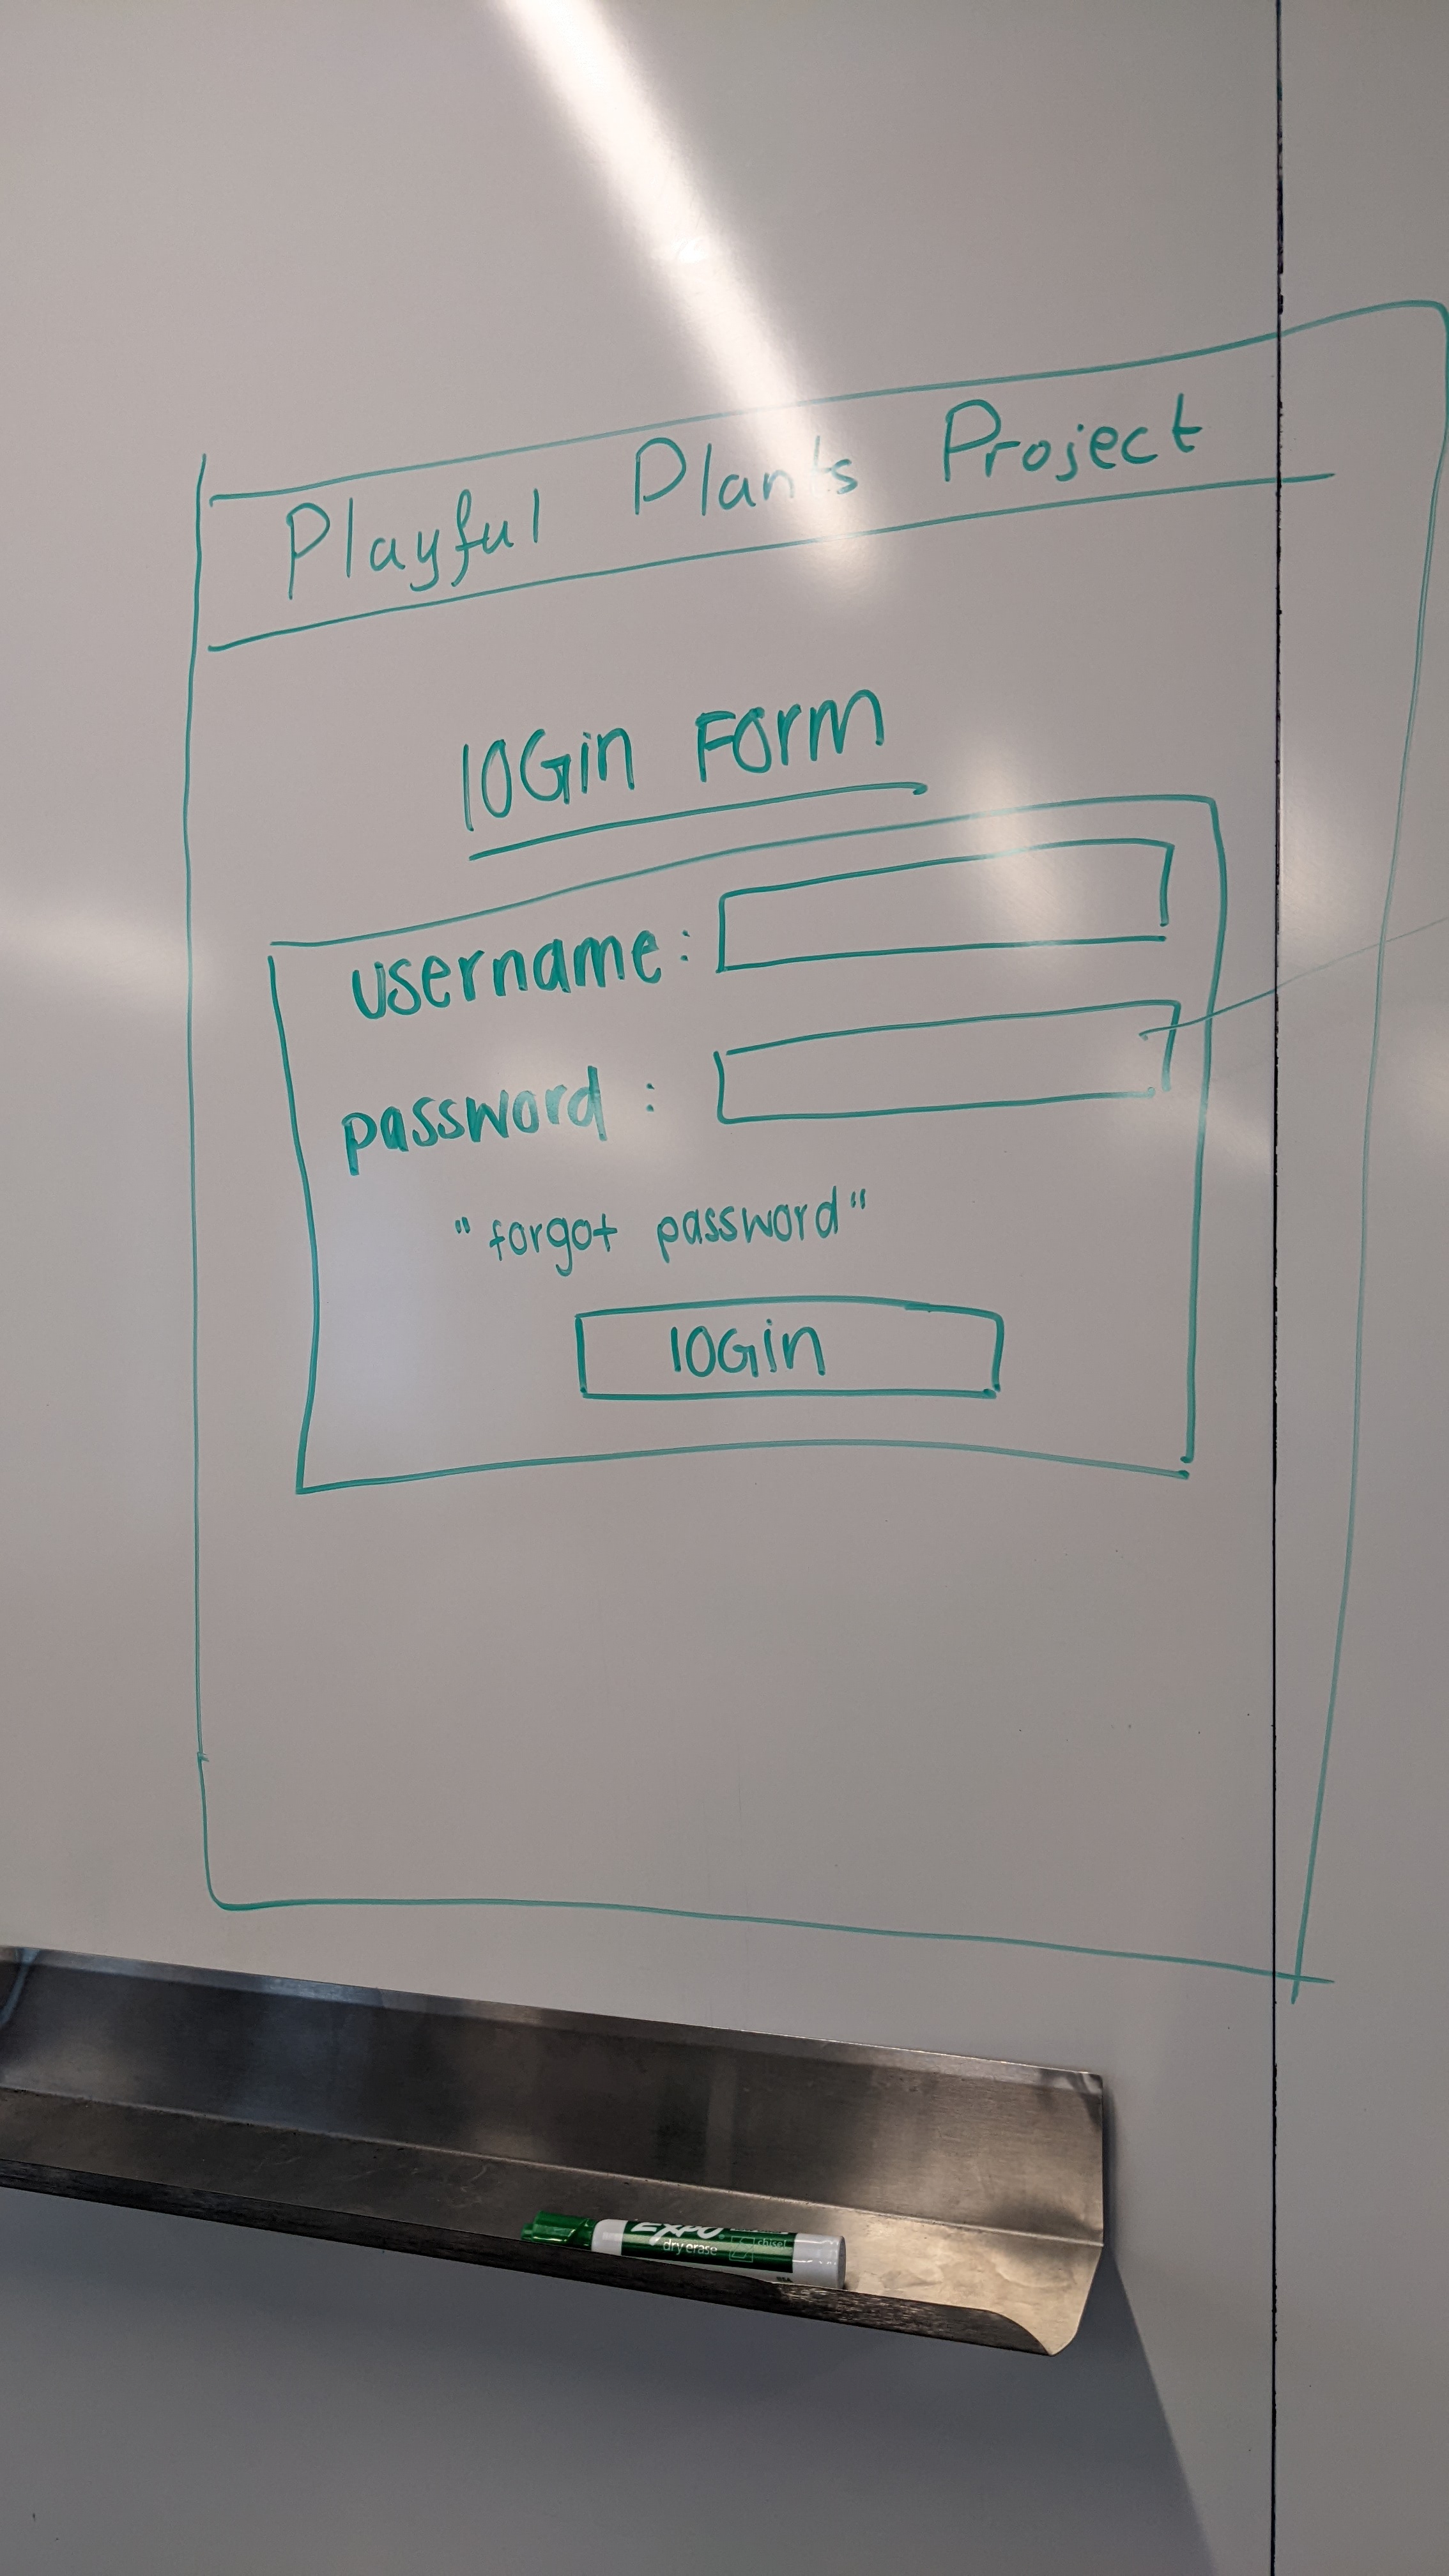 Playful Plants Project
loGin Form
username:
password :
"forgot password"
loGin
EXPO
dry erase
chisel